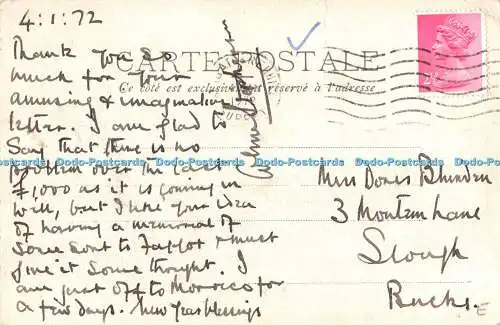 4.1.72
Thank you so
much for your
amusing & imaginative
letter. I am glad to
say that there is no
problem over the last
£1,000 as it is coming in
well, but I like your idea
of having a memorial of
some sort to & must
give it some thought. I
am just off to Morocco for
a few days. New Year blessings
CARTE POSTALE
Ce côté est exclusivement réservé à l'adresse
Miss Doris Blunden
3 Montem Lane
Slough
Bucks.
E
Dodo-Postcards Dodo-Postcards Dodo-Postcards Dodo-Postcards Dodo-Postcards Dodo-Postcards